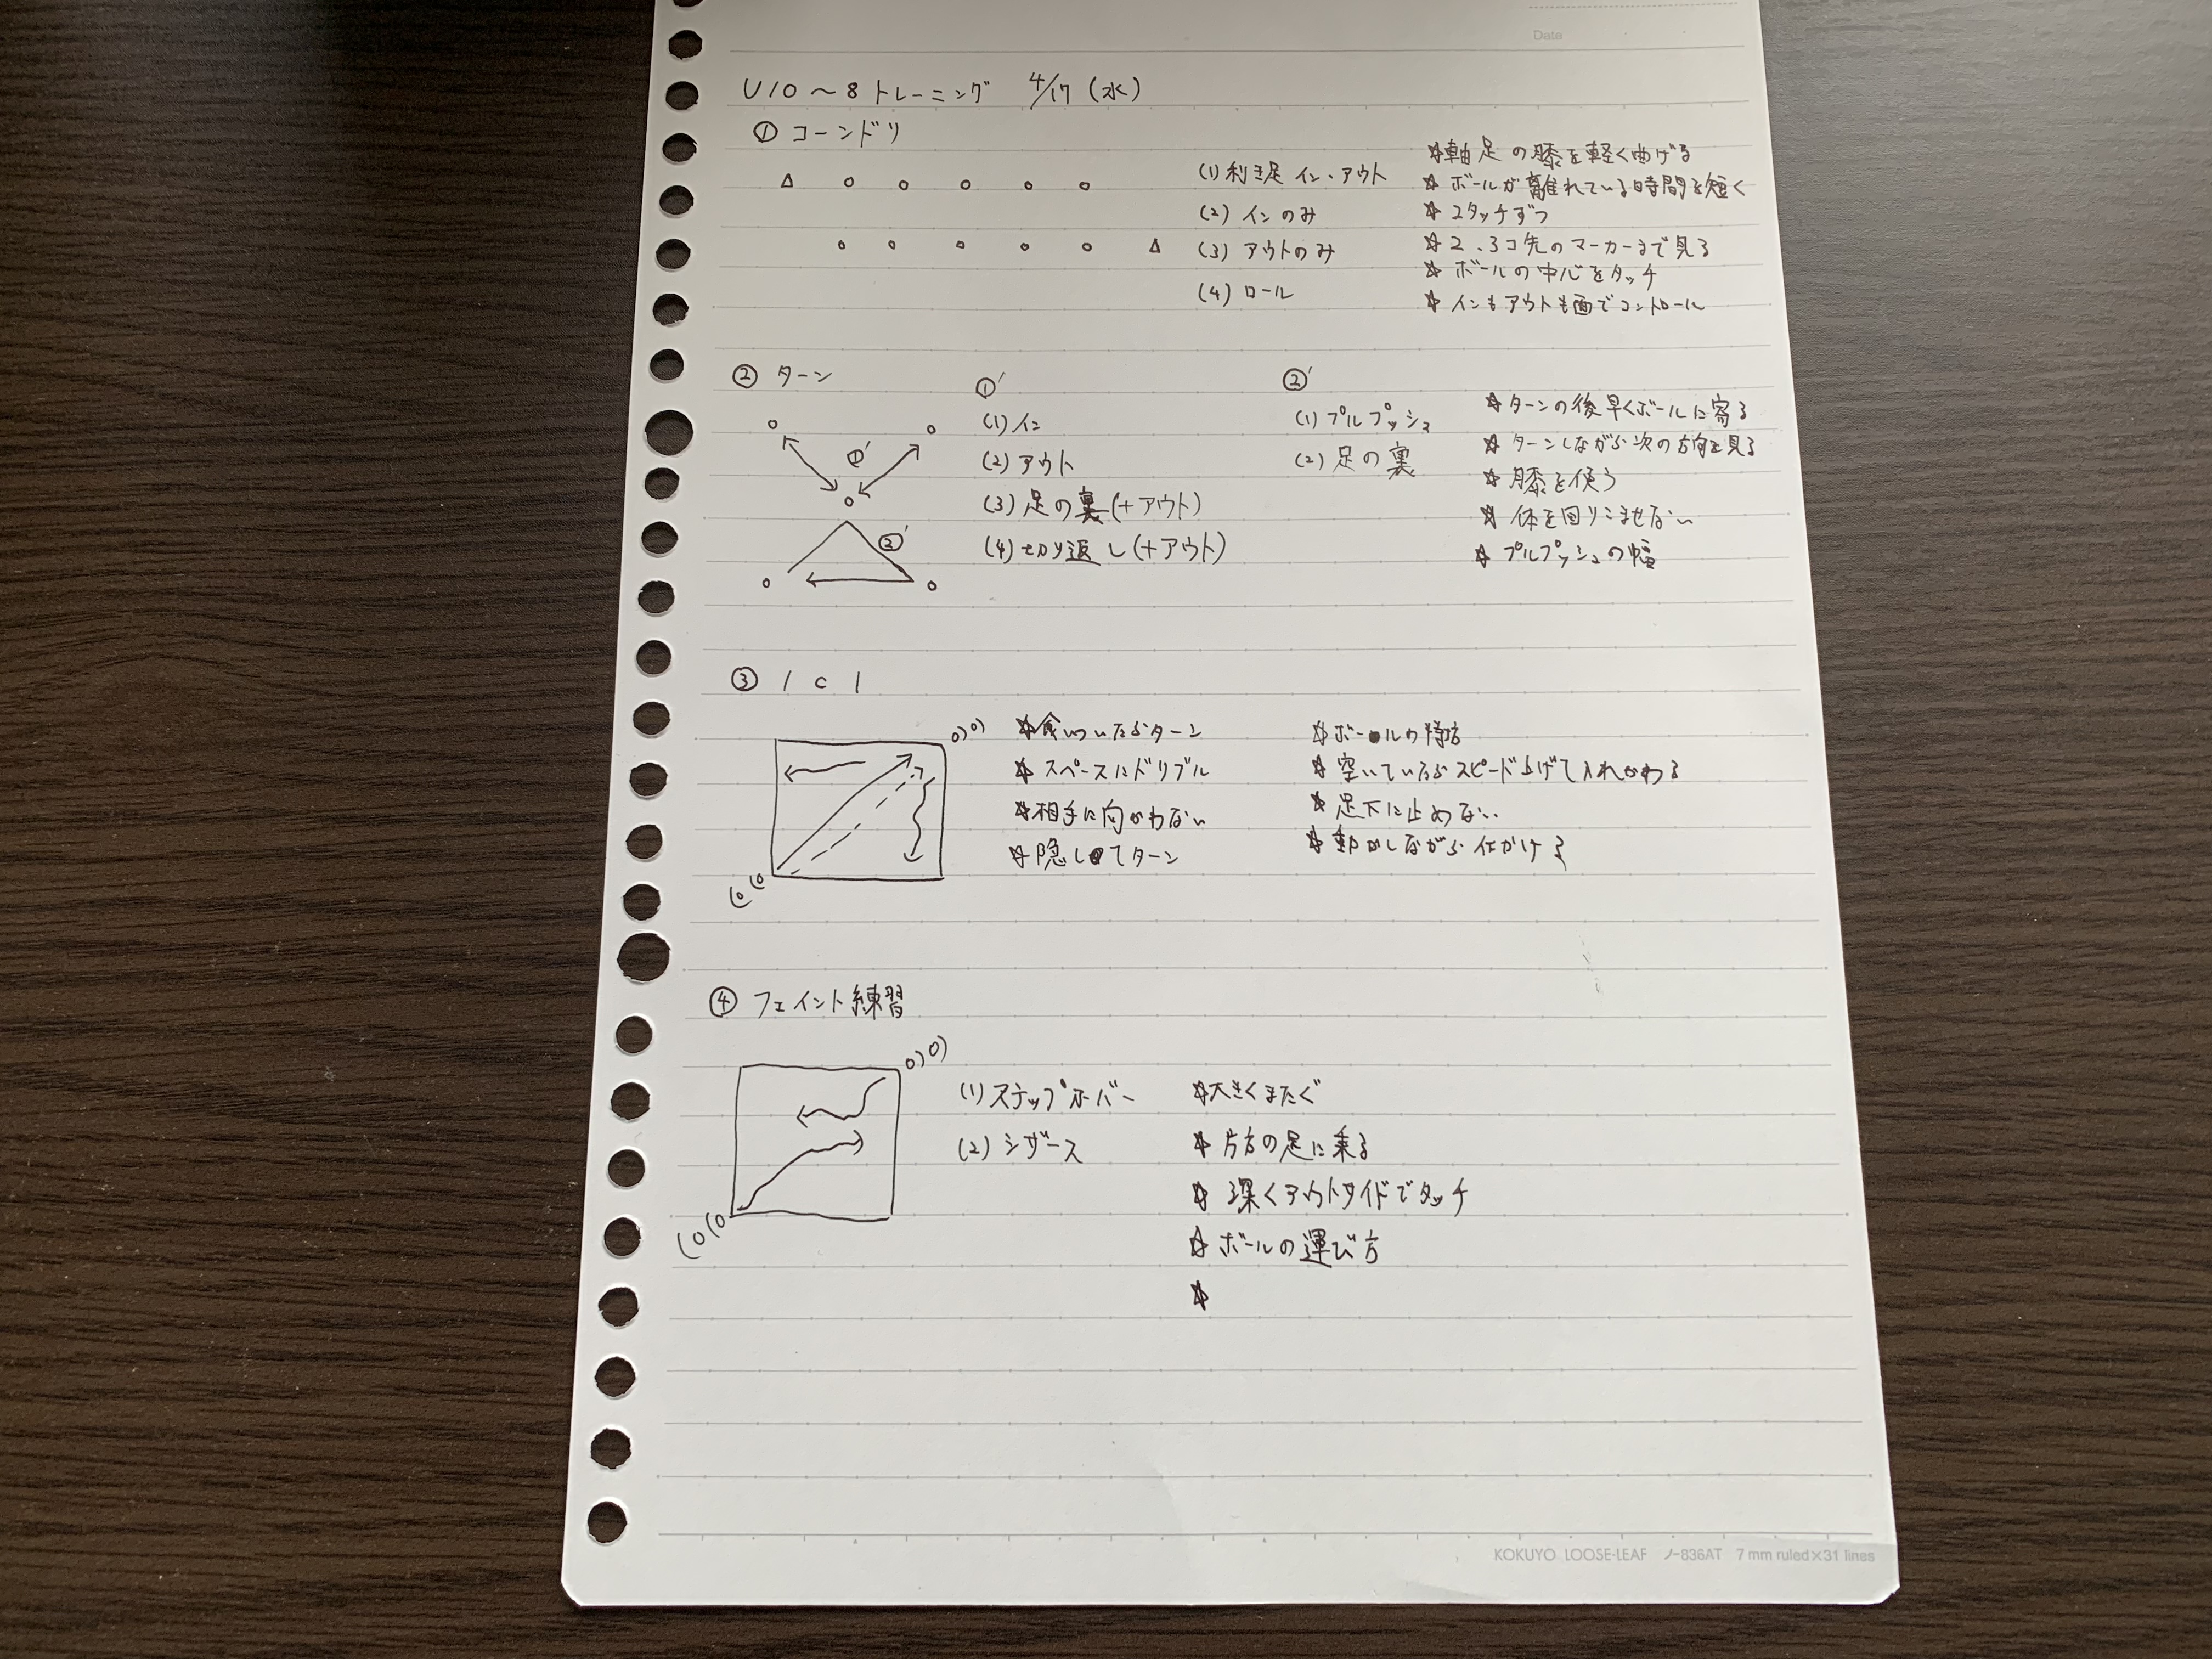 Date
U10～8トレーニング 4/17（水）
① コーンドリ
(1) 利き足 イン・アウト
(2) インのみ
(3) アウトのみ
(4) ロール
☆軸足の膝を軽く曲げる
☆ボールが離れている時間を短く
☆2タッチずつ
☆2、3コ先のマーカーまで見る
☆ボールの中心をタッチ
☆インもアウトも面でコントロール
② ターン
①'
②'
①'
(1) イン
(2) アウト
(3) 足の裏(+アウト)
(4) 切り返し(+アウト)
②'
(1) プルプッシュ
(2) 足の裏
☆ターンの後早くボールに寄る
☆ターンしながら次の方向を見る
☆膝を使う
☆体を回りこませない
☆プルプッシュの幅
③ 1 c 1
☆食いついたらターン
☆スペースにドリブル
☆相手に向かわない
☆隠してターン
☆ボールの
☆空いているらスピード上げて入れかわる
☆足下に止めない
☆動かしながら仕かける
④ フェイント練習
(1) ステップオーバー
(2) シザース
☆大きくまたぐ
☆片方の足に乗る
☆深くアウトサイドでタッチ
☆ボールの運び方
☆
KOKUYO LOOSE-LEAF ノ-836AT 7 mm ruled×31 lines